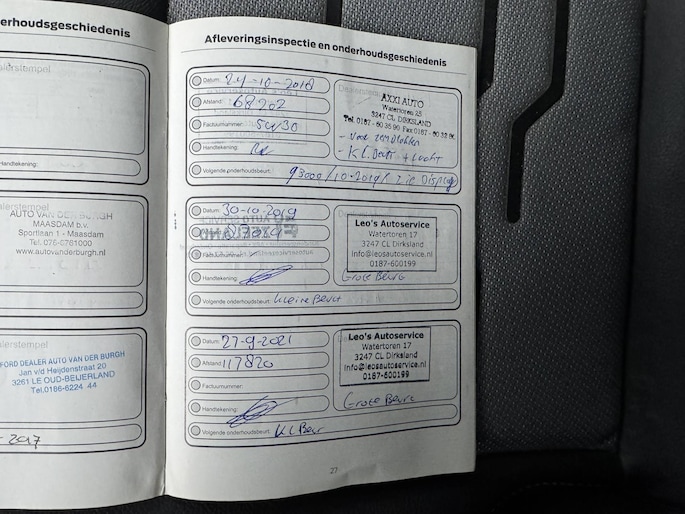 erhoudsgeschiedenis
alerstempel
Handtekening:
alerstempel
AUTO VAN DER BURGH
MAASDAM b.v.
Sportlaan 1 - Maasdam
Tel. 078-6761000
www.autovanderburgh.nl
alerstempel
FORD DEALER AUTO VAN DER BURGH
Jan v/d Heijdenstraat 20
3261 LE OUD-BEIJERLAND
Tel.0186-6224 44
- 2017
Afleveringsinspectie en onderhoudsgeschiedenis
Datum: 24-10-2018
Afstand: 68202
Factuurnummer: 5W30
Handtekening:
Volgende onderhoudsbeurt: 93000/10-2019/ Zie Display
AXXI AUTO
Watertoren 25
3247 CL DIRKSLAND
- Voor remblokken
- Kl. Beurt + Lucht
Datum: 30-10-2019
Afstand
Factuurnummer:
Handtekening:
Volgende onderhoudsbeurt: Kleine Beurt
Leo's Autoservice
Watertoren 17
3247 CL Dirksland
info@leosautoservice.nl
0187-600199
Grote Beurt
Datum: 27-9-2021
Afstand: 117820
Factuurnummer:
Handtekening:
Volgende onderhoudsbeurt: Kl Beur
Leo's Autoservice
Watertoren 17
3247 CL Dirksland
info@leosautoservice.nl
0187-600199
Grote Beurt
27